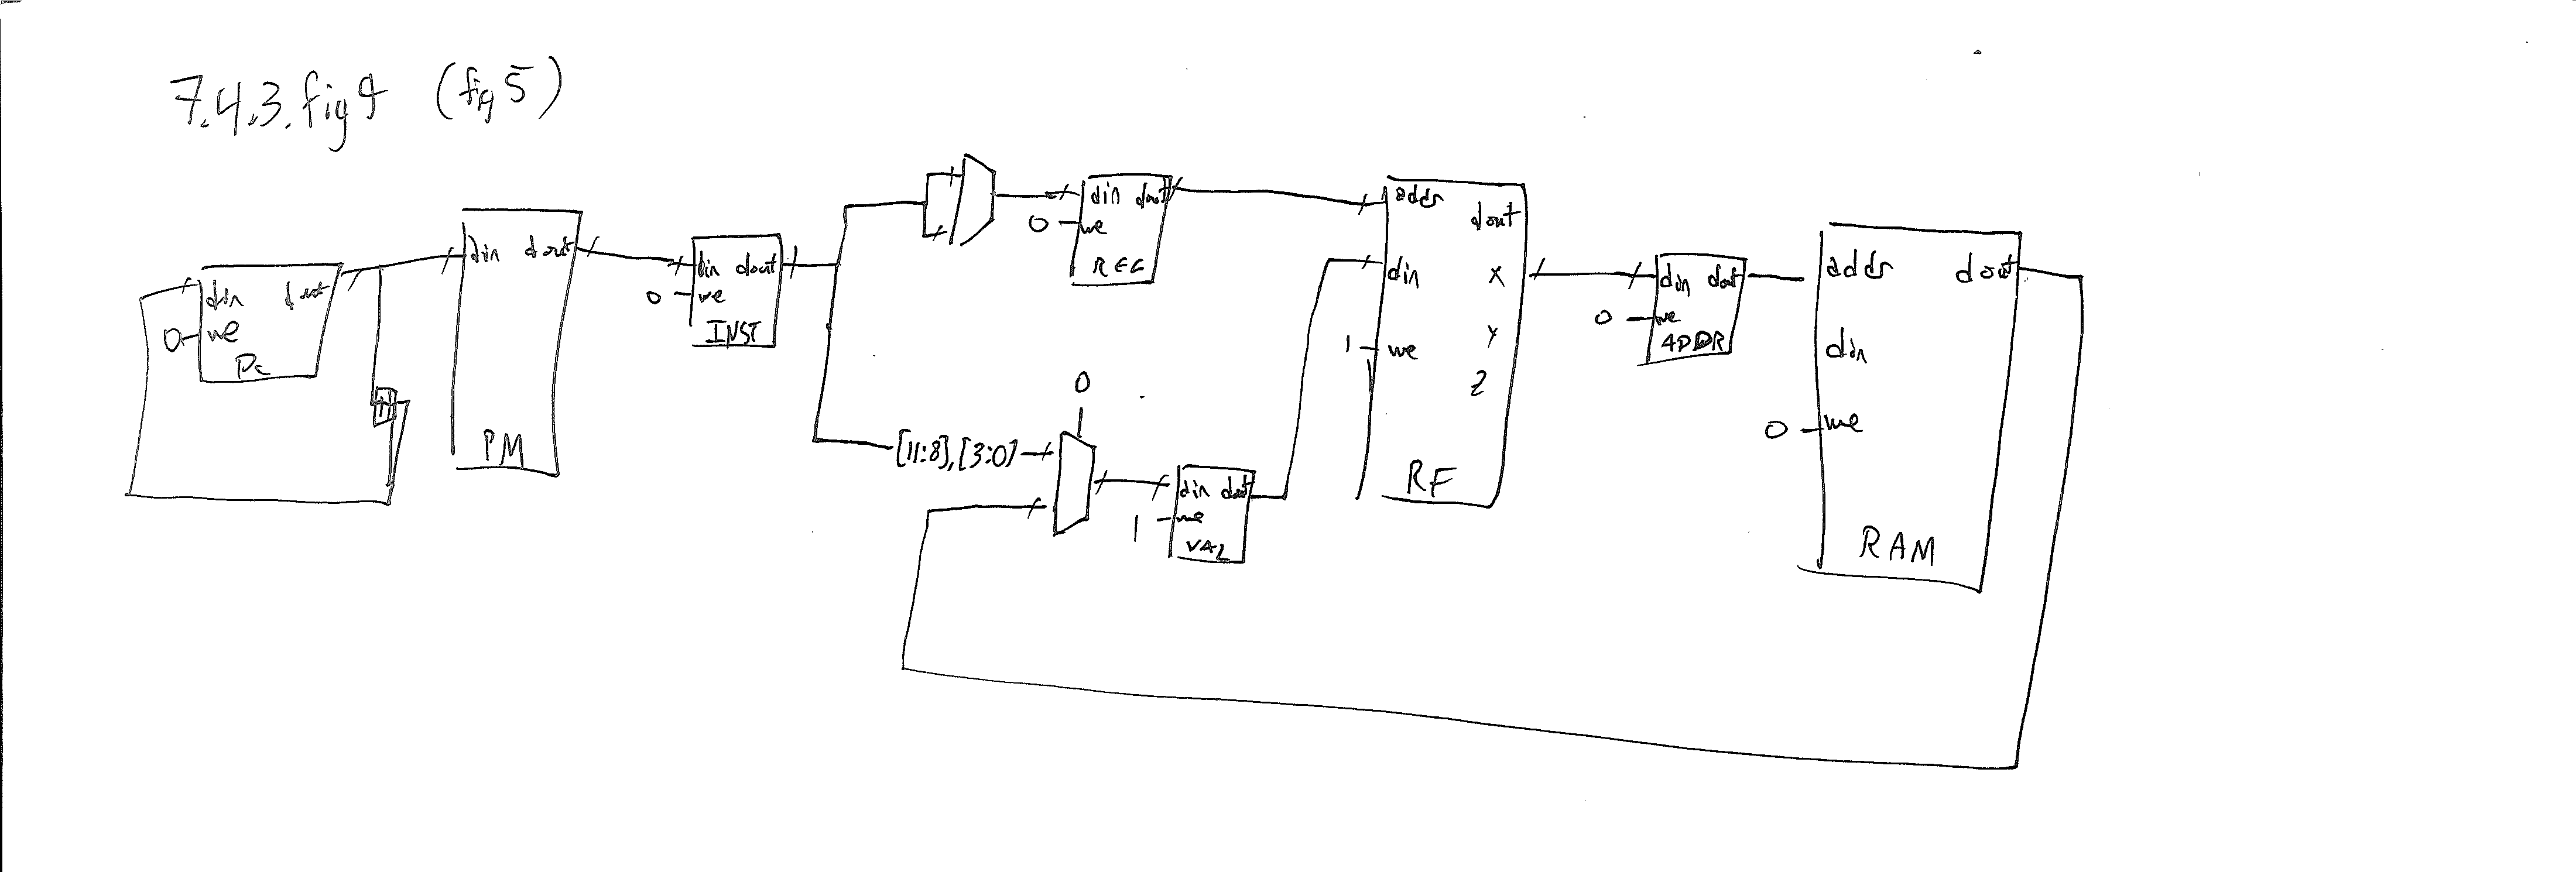 7.4.3.fig4 (fig 5)
din dout
0 we
PC
+
din dout
PM
din dout
0 we
INST
din dout
0 we
REG
[11:8],[3:0]
0
din dout
1 we
VAL
addr
dout
din X
Y
1 we
Z
RF
din dout
0 we
ADDR
addr dout
din
0 we
RAM